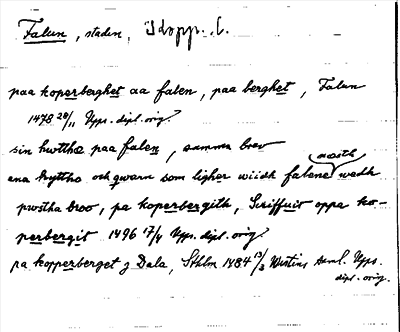 Falun, staden, Idopp. C.
paa koperberghet aa falen, paa berghet, Falun
1478 28/11 Upps. dipl. orig.
sin hwttha paa falen, samma brev
ena hyttho och qwarn som ligher wiidh falene nærsth wedh
prostha broo, pa koperbergith, Scriffuit oppa ko-
perbergit 1496 17/4 Upps. dipl. orig.
pa kopperberget j Dala, Sthlm 1484 13/3 Westins saml. Upps.
dipl. orig.